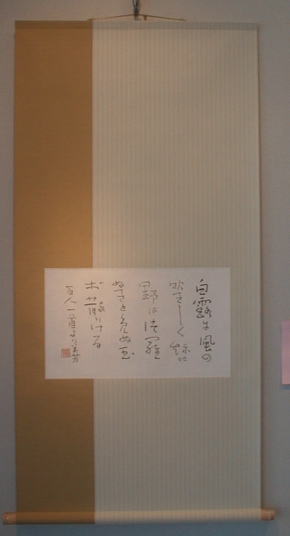 白露に風の
吹きしく秋の
野はつら
ぬきとめぬ玉
そ散りける
百人一首より